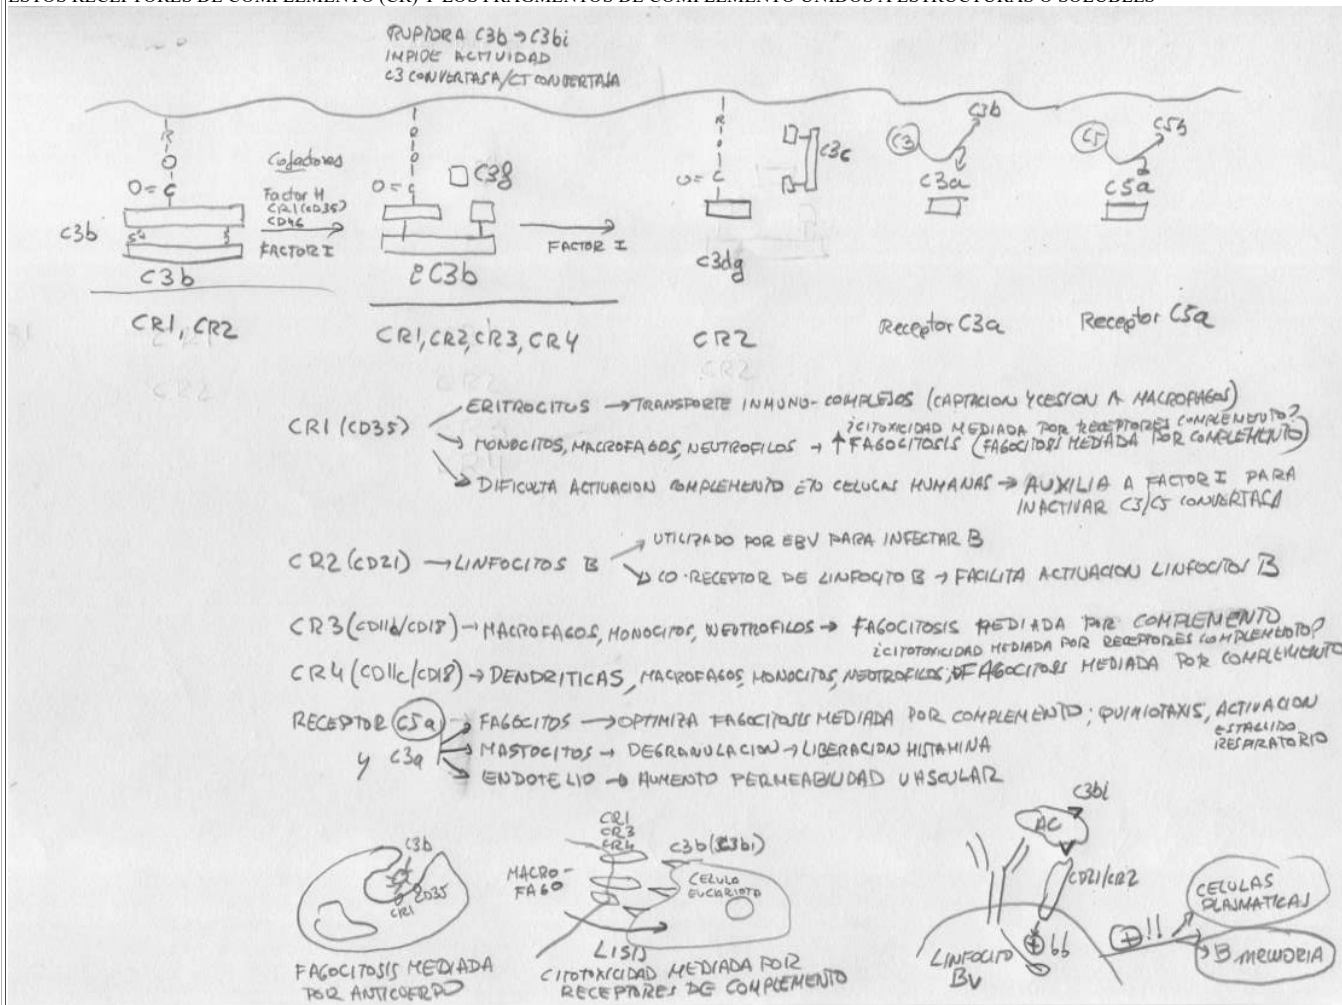 ESTOS RECEPTORES DE COMPLEMENTO (CR) Y LOS FRAGMENTOS DE COMPLEMENTO UNIDOS A ESTRUCTURAS O SOLUBLES
RUPTORA C3b → C3bi
IMPIDE ACTIVIDAD
C3 CONVERTASA/CT CONVERTASA
R
O
O=C
C3b
C3b
CR1, CR2
Cofactores
Factor H
CR1(CD35)
CD46
FACTOR I
O=C
C3g
C3b
CR1, CR2, CR3, CR4
FACTOR I
R
C
C3c
C3dg
CR2
C3
C3b
C3a
Receptor C3a
C5
C5b
C5a
Receptor C5a
CR1 (CD35)
ERITROCITOS → TRANSPORTE INMUNO-COMPLEJOS (CAPTACION Y CESION A MACROFAGOS)
¿CITOXICIDAD MEDIADA POR RECEPTORES COMPLEMENTO?
MONOCITOS, MACROFAGOS, NEUTROFILOS → ↑ FAGOCITOSIS (FAGOCITOSIS MEDIADA POR COMPLEMENTO)
DIFICULTA ACTIVACION COMPLEMENTO EN CELULAS HUMANAS → AUXILIA A FACTOR I PARA
INACTIVAR C3/C5 CONVERTASA
CR2 (CD21) → LINFOCITOS B
UTILIZADO POR EBV PARA INFECTAR B
CO-RECEPTOR DE LINFOCITO B → FACILITA ACTIVACION LINFOCITOS B
CR3 (CD11b/CD18) → MACROFAGOS, MONOCITOS, NEUTROFILOS → FAGOCITOSIS MEDIADA POR COMPLEMENTO
¿CITOTOXICIDAD MEDIADA POR RECEPTORES COMPLEMENTO?
CR4 (CD11c/CD18) → DENDRITICAS, MACROFAGOS, MONOCITOS, NEUTROFILOS; FAGOCITOSIS MEDIADA POR COMPLEMENTO
RECEPTOR C5a → FAGOCITOS → OPTIMIZA FAGOCITOSIS MEDIADA POR COMPLEMENTO; QUIMIOTAXIS, ACTIVACION
ESTALLIDO
RESPIRATORIO
y C3a
MASTOCITOS → DEGRANULACION → LIBERACION HISTAMINA
ENDOTELIO → AUMENTO PERMEABILIDAD VASCULAR
C3b
CD35
CR1
FAGOCITOSIS MEDIADA
POR ANTICUERPO
CR1
CR3
CR4
C3b (C3bi)
MACRO-
FAGO
CELULA
EUCARIOTA
LISIS
CITOTOXICIDAD MEDIADA POR
RECEPTORES DE COMPLEMENTO
C3bi
AC
CD21/CR2
LINFOCITO
BV
+
+!!
CELULAS
PLASMATICAS
B MEMORIA